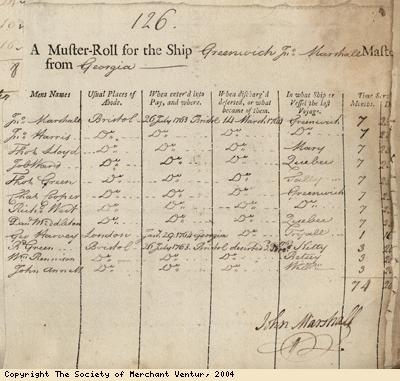 126.
A Muster-Roll for the Ship Greenwich Jno. Marshall Maste
from Georgia
Mens Names Usual Places of Abode. When enter'd into Pay, and where. When discharg'd deserted, or what became of them. In what Ship or Vessel the last Voyage. Time Serv Months. D
Jno. Marshall Bristol 26 July 1763 Bristol 14 March 1764 Greenwich 7
Jno. Harris Do Do Do Do 7
Thos. Lloyd Do Do Do Mary 7
Job Ward Do Do Do Quebec 7
Thos. Green Do Do Do 7
Chas. Cooper Do Do Do Greenwich 7
Richd. West Do Do Do Do 7
Danl. Middleton Do Do Do Quebec 7
Geo Harvey London Jan. 29 1764 Georgia Do 1
Rd. Green Bristol 26 July 1763 Bristol deserted Kitty 3
Wm. Rennison Do Do Do Betsey 3
John Annell Do Do Do 3
74
John Marshall
Copyright The Society of Merchant Ventur, 2004